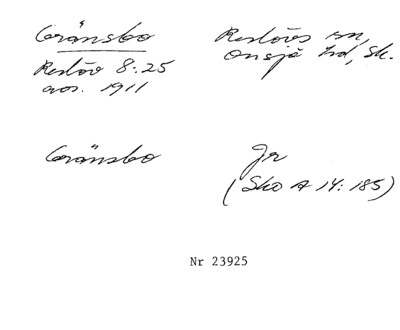 Gränsbo
Reslövs sn,
Onsjö hd, Sk.
Reslöv 8:25
avs. 1911
Gränsbo
Jr
(Sko A 14:185)
Nr 23925